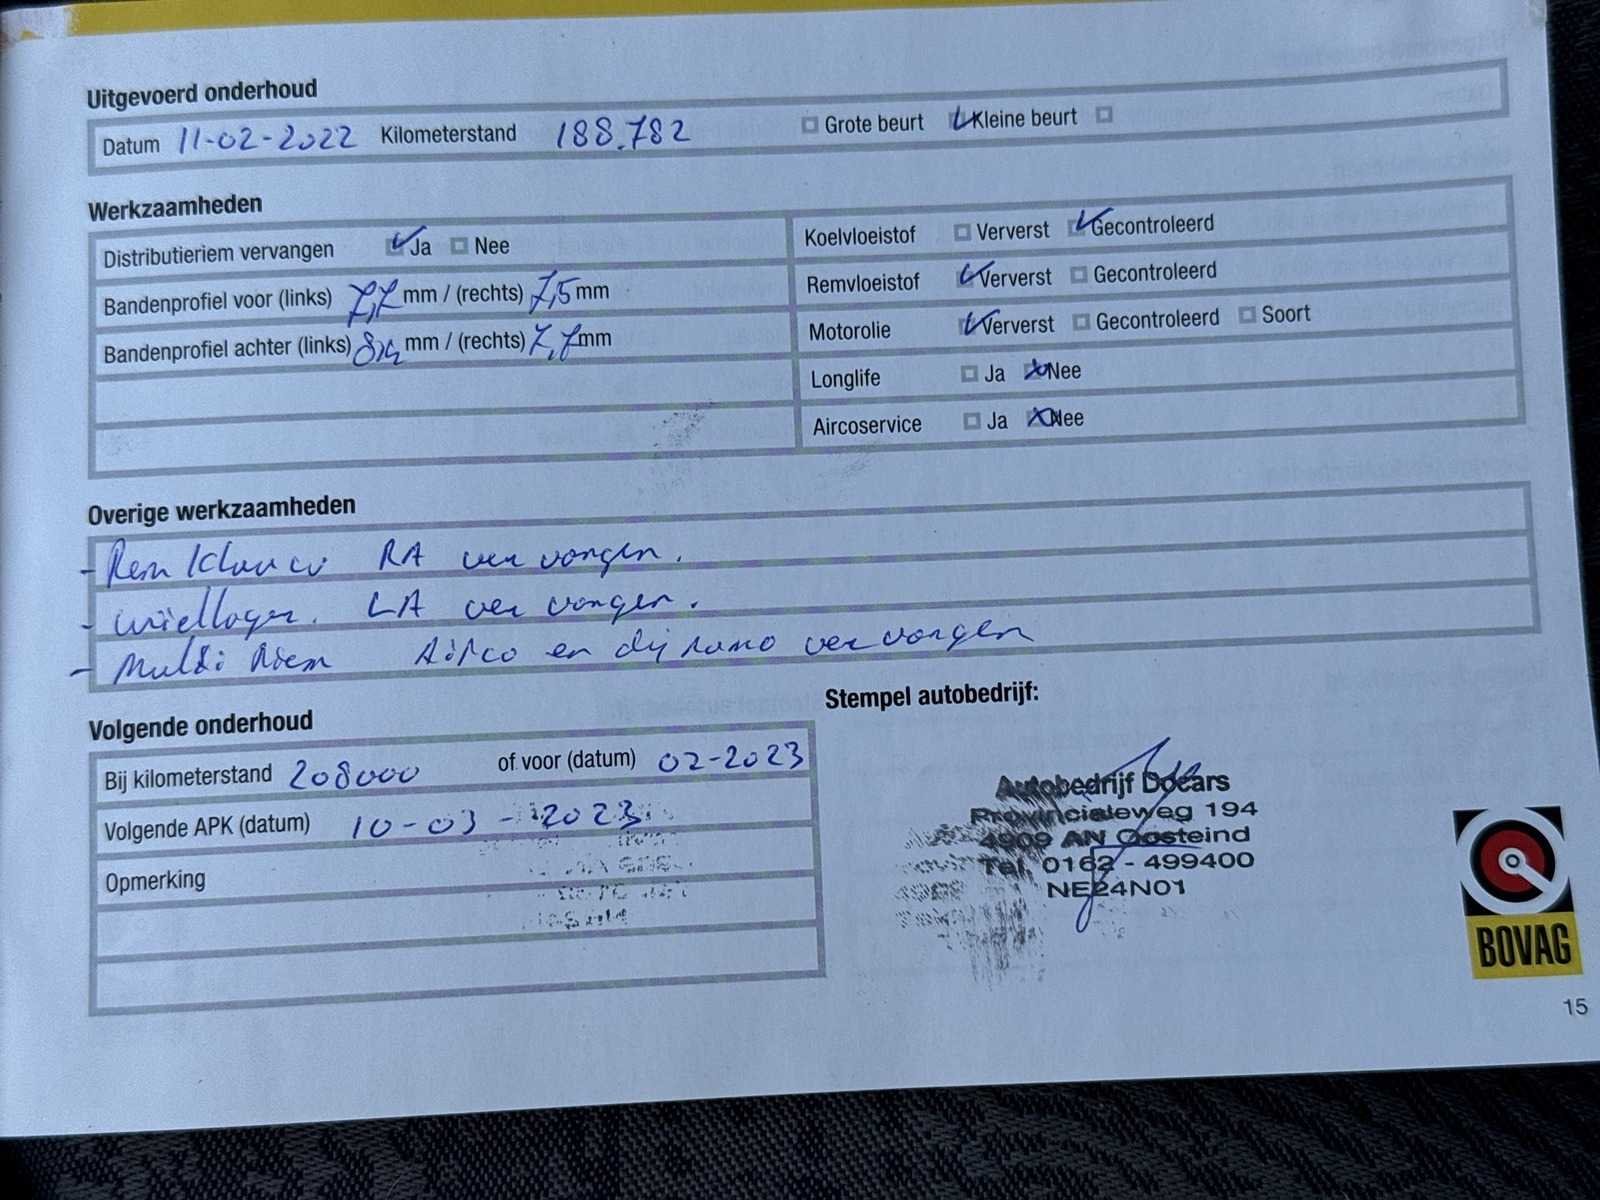 Uitgevoerd onderhoud
Datum 11-02-2022 Kilometerstand 188.782 Grote beurt Kleine beurt
Werkzaamheden
Distributieriem vervangen Ja Nee
Bandenprofiel voor (links) 7,7 mm / (rechts) 7,5 mm
Bandenprofiel achter (links) mm / (rechts) 7,7 mm
Koelvloeistof Ververst Gecontroleerd
Remvloeistof Ververst Gecontroleerd
Motorolie Ververst Gecontroleerd Soort
Longlife Ja Nee
Aircoservice Ja Nee
Overige werkzaamheden
- Remklauw RA vervangen.
- wiellager. LA vervangen.
- Multi Riem Airco en dynamo vervangen
Volgende onderhoud
Bij kilometerstand 208000 of voor (datum) 02-2023
Volgende APK (datum) 10-03-2023
Opmerking
Stempel autobedrijf:
Autobedrijf Docars
Provincialeweg 194
4909 AN Oosteind
Tel. 0162 - 499400
NE24N01
BOVAG
15